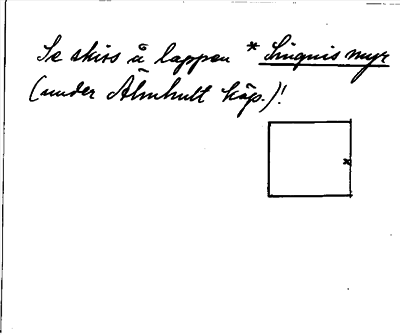 Se skiss å lappen * Linguis myr
(under Älmhult köp.)!
x